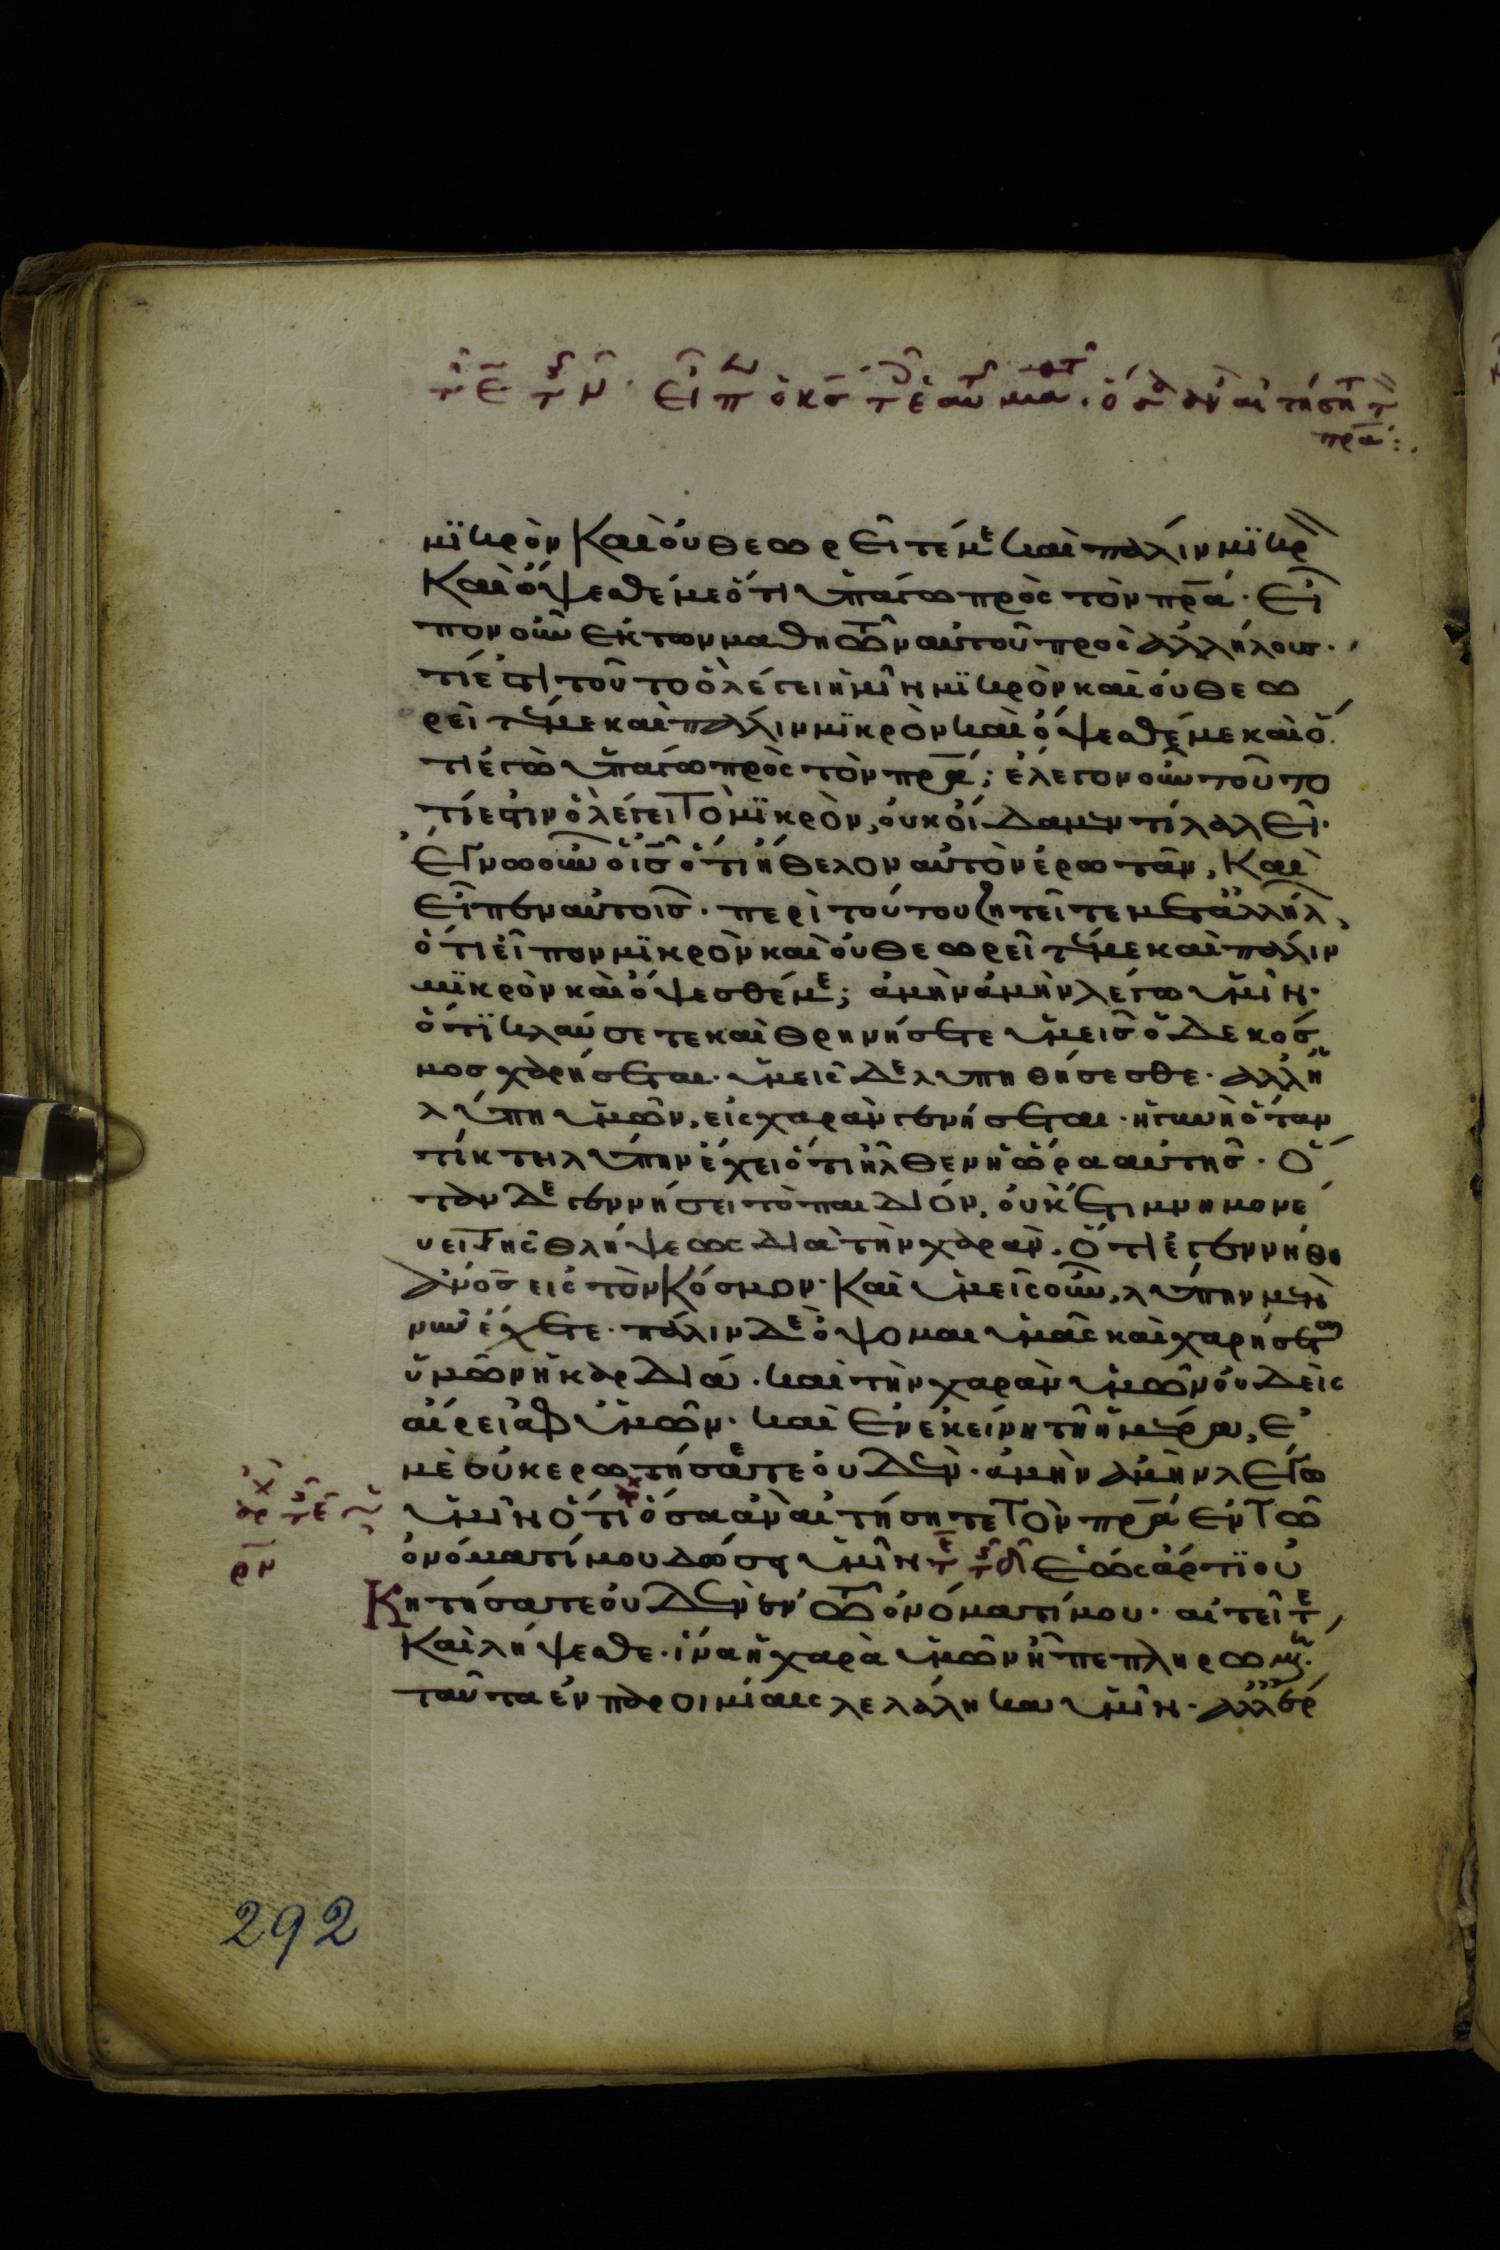 τῆ ε τῆς ν· εἶπ ὁ κς τ ἑαυ μα· ὅσα ἂν αἰτήσητ
πρα:
μϊκρὸν καὶ οὐ θεωρεῖτέ με καὶ πάλιν μϊκρ
καὶ ὄψεσθέ με ὅτι ὑπάγω πρὸς τὸν πρα· εἶ
πον οὖν ἐκ τῶν μαθητῶν αὐτοῦ πρὸς ἀλλήλους·
τί ἐστι τοῦτο ὃ λέγει ἡμῖν μϊκρὸν καὶ οὐ θεω
ρεῖτέ με καὶ πάλιν μϊκρὸν καὶ ὄψεσθέ με καὶ ὅ
τι ἐγὼ ὑπάγω πρὸς τὸν πρα; ἔλεγον οὖν τοῦτο
τί ἐστιν ὃ λέγει τὸ μϊκρὸν, οὐκ οἴδαμεν τί λαλεῖ·
ἔγνω οὖν ὁ ις ὅτι ἤθελον αὐτὸν ἐρωτᾶν, καὶ
εἶπεν αὐτοῖς· περὶ τούτου ζητεῖτε μετ ἀλλήλ,
ὅτι εἶπον μϊκρὸν καὶ οὐ θεωρεῖτέ με καὶ πάλιν
μϊκρὸν καὶ ὄψεσθέ με; ἀμὴν ἀμὴν λέγω ὑμῖν·
ὅτϊ κλαύσετε καὶ θρηνήσετε ὑμεῖς ὁ δὲ κόσ
μος χαρήσεται· ὑμεῖς δὲ λυπηθήσεσθε· ἀλλ ἡ
λύπη ὑμῶν, εἰς χαρὰν γενήσεται· ἡ γυνὴ ὅταν
τίκτη λύπην ἔχει ὅτι ἦλθεν ἡ ὥρα αὐτῆς· ὅ
ταν δὲ γεννήσει τὸ παιδίον, οὐκ ἔτι μνημονέ
υει τῆς θλήψεως διὰ τὴν χαρὰν· ὅτι ἐγεννήθη
ἀνος εἰς τὸν κόσμον· καὶ ὑμεῖς οὖν, λύπην μὲν
νῦν ἔχετε· πάλιν δὲ ὄψομαι ὑμᾶς καὶ χαρήσεται
ὑμῶν ἡ καρδία· καὶ τὴν χαρὰν ὑμῶν οὐδεὶς
αἴρει ἀφ ὑμῶν· καὶ ἐν ἐκείνη τῆ ἡμέρα, ἐ
μὲ οὐκ ερωτήσατε οὐδέν· ἀμὴν ἀμὴν λέγω
ὑμῖν ὅτι ὅσα ἂν αἰτήσητε τὸν πρα ἐν τῶ
ὀνόματί μου δώσει ὑμῖν ἕως ἄρτϊ οὐ
κ ητήσατε οὐδὲν ἐν τῶ ὀνόματί μου· αἰτεῖτε,
καὶ λήψεσθε· ἵνα ἡ χαρὰ ὑμῶν ἦ πεπληρωμεν·
ταῦτα ἐν παροιμίαις λελάληκα ὑμῖν· ἀλλ ἔρ
292